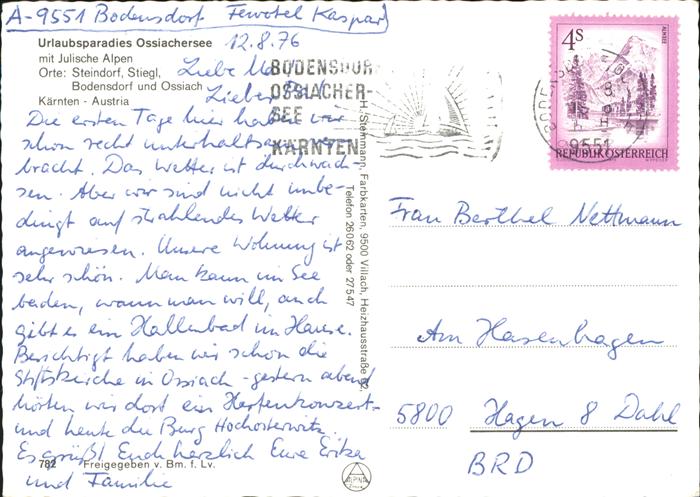 A-9551 Bodensdorf Ferotel Kaspar
Urlaubsparadies Ossiachersee
mit Julische Alpen
Orte: Steindorf, Stiegl,
Bodensdorf und Ossiach
Kärnten - Austria
12.8.76
Liebe
Lieber
Die ersten Tage hier haben wir
schon recht unterhaltsam
bracht. Das Wetter ist durchwach-
sen. Aber wir sind nicht unbe-
dingt auf strahlendes Wetter
angewiesen. Unsere Wohnung ist
sehr schön. Man kann im See
baden, wann man will, auch
gibt es ein Hallenbad im Hause.
Besichtigt haben wir schon die
Stiftskirche in Ossiach - gestern abend
hörten wir dort ein Harfenkonzert -
und heute die Burg Hochosterwitz.
Es grüßt Euch herzlich Eure Erika
und Familie
782 Freigegeben v. Bm. f. Lv.
BODENSDORF
OSSIACHER-
SEE
KÄRNTEN
H. Stemmann, Farbkarten, 9500 Villach, Heizhausstraße
Telefon 26062 oder 27547
4S
ALMSEE
REPUBLIK ÖSTERREICH
9551
Frau Berthel Nettmann
Am Hasenhagen
5800 Hagen 8 Dahl
BRD